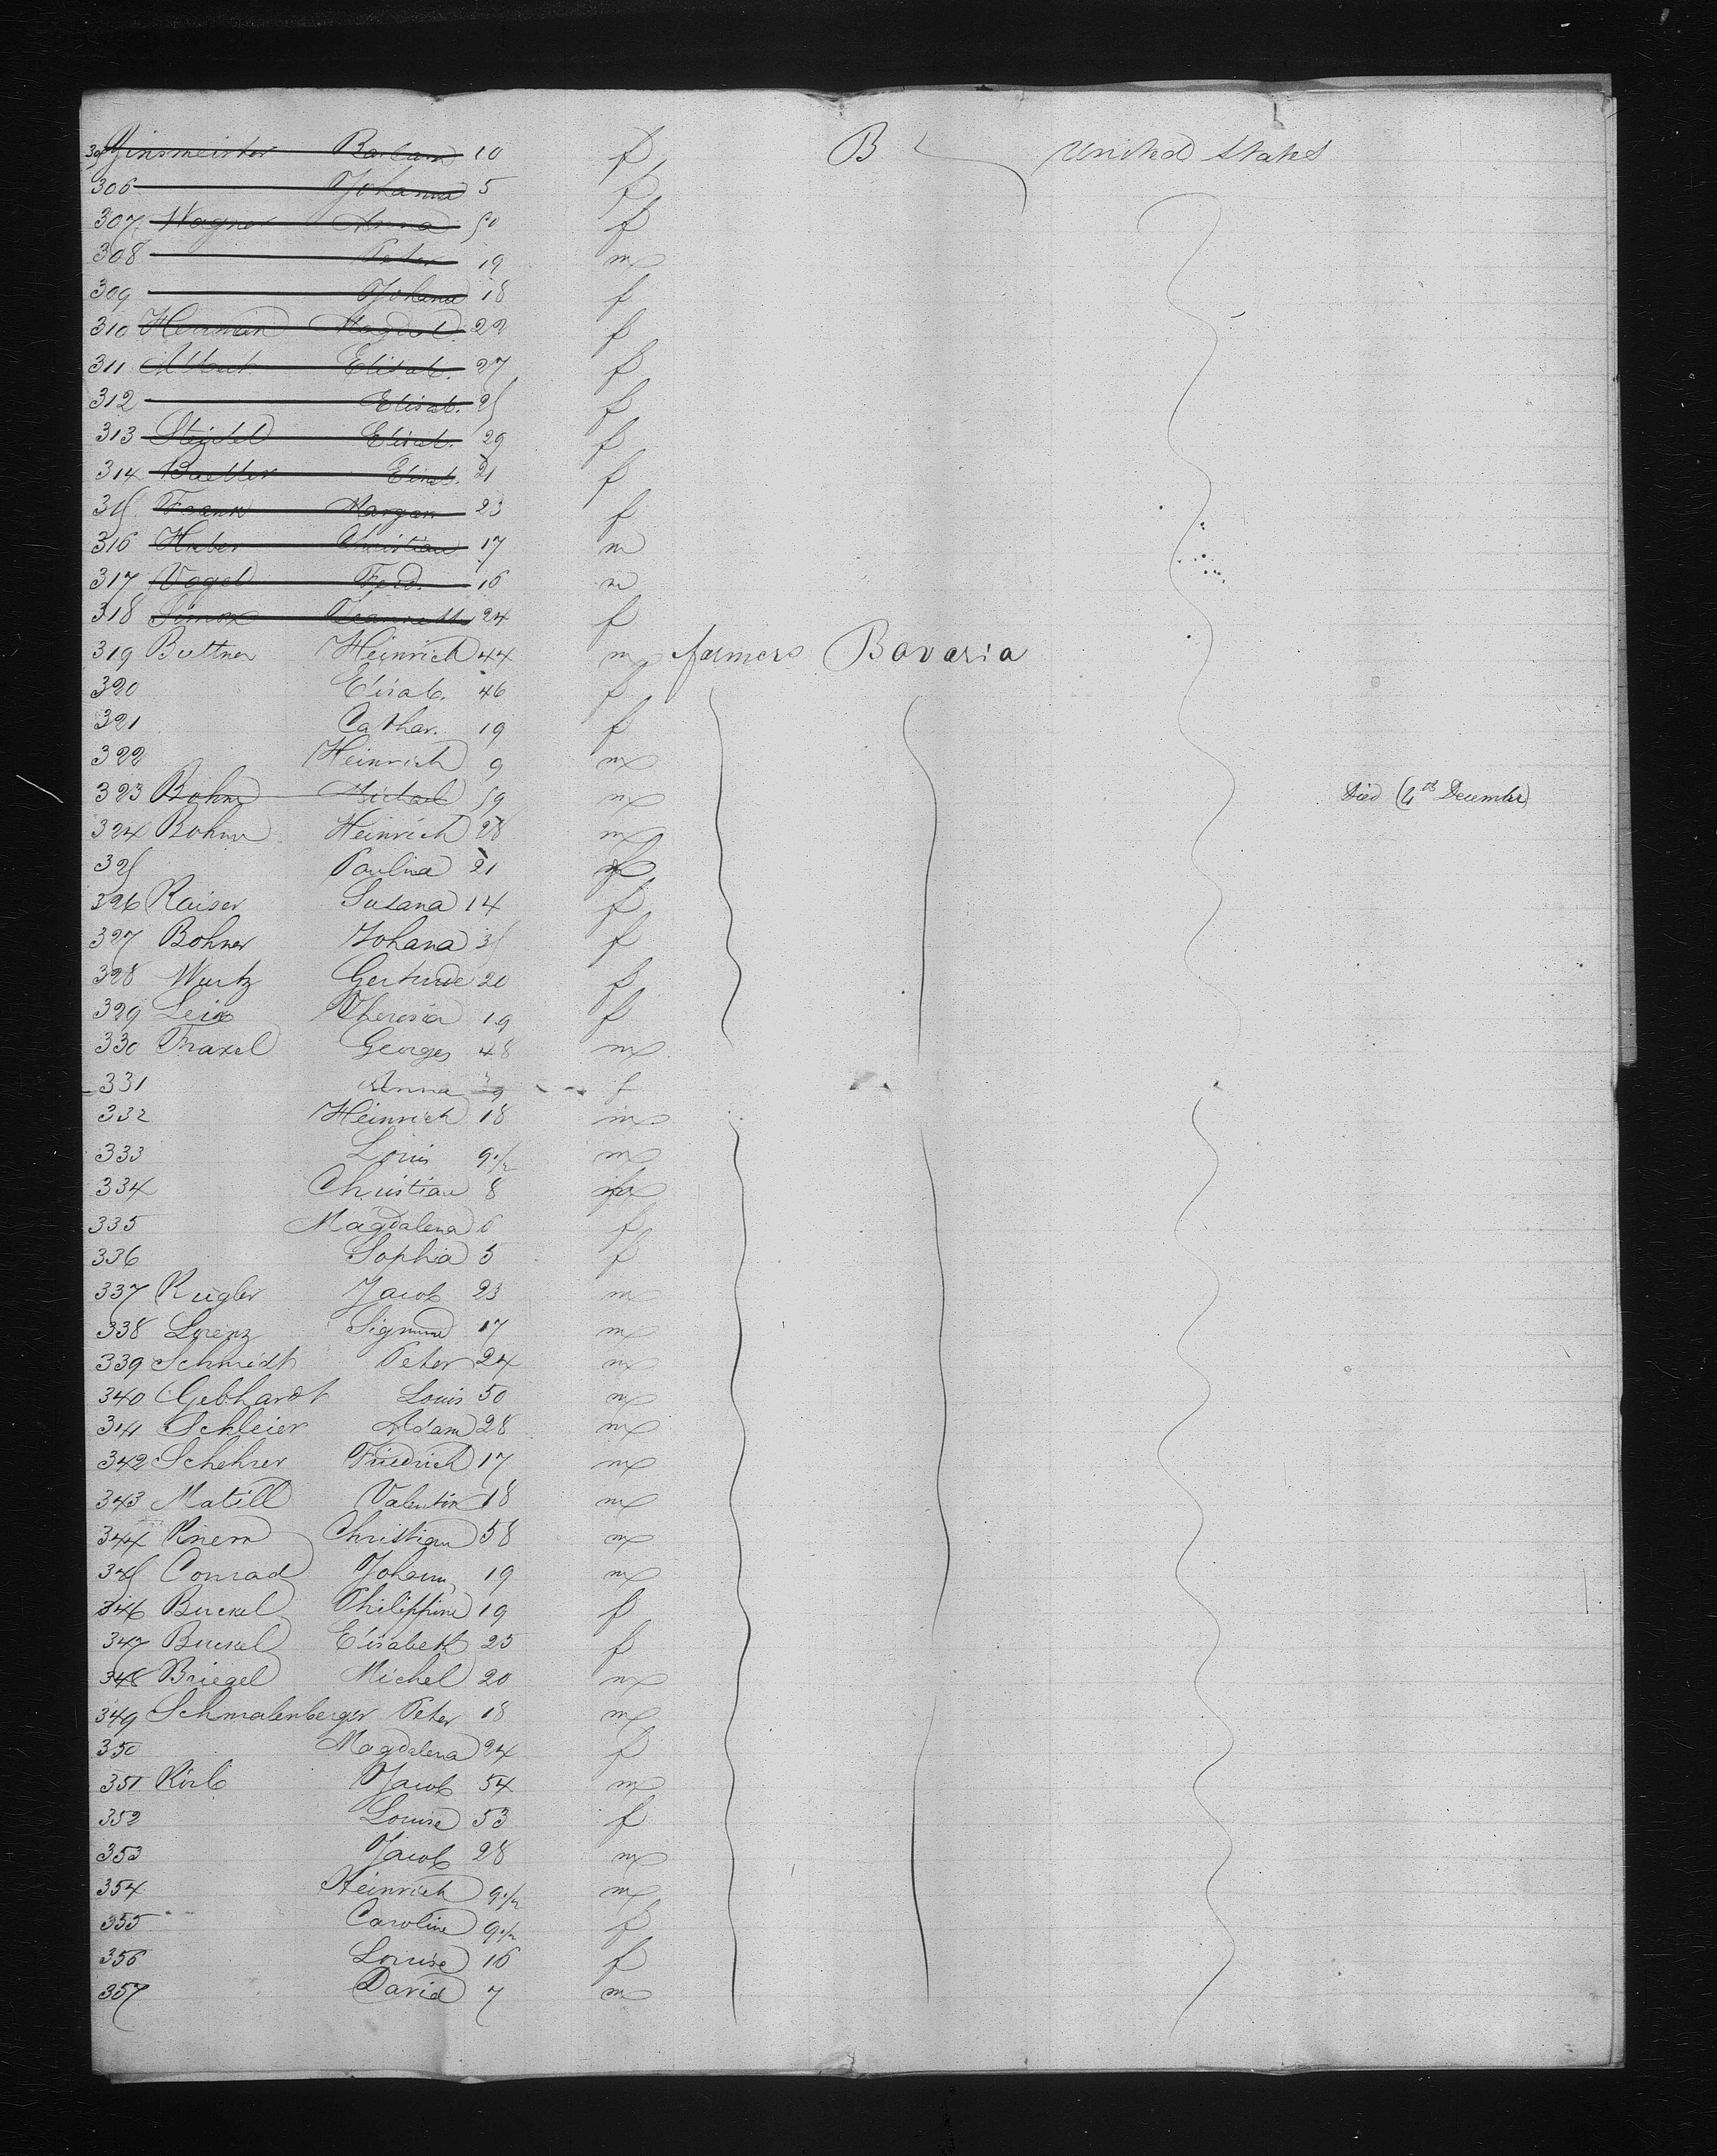 305 Zinsmeister Barbara 10 f B United States
306 Johanna 5 f
307 Wagner Anna 50 f
308 Peter 19 m
309 Johana 18 f
310 Herrman Magdal. 22 f
311 Albert Elisab. 27 f
312 Elisab. 25 f
313 Elisab. 29 f
314 Elisab. 21 f
315 Frank Margar. 23 f
316 Huber Christian 17 m
317 Vogel Ferd. 16 m
318 Simon Jeannette 24 f
319 Buttner Heinrich 44 m farmers Bavaria
320 Elisab. 46 f
321 Cathar. 19 f
322 Heinrich 9 m
323 Bohner Michael 59 m Died (4th December)
324 Bohner Heinrich 28 m
325 Paulina 21 f
326 Kaiser Susana 14 f
327 Bohner Johana 35 f
328 Wurtz Gertrude 20 f
329 Leix Theresia 19 f
330 Traxel Georges 48 m
331 Anna 39 f
332 Heinrich 18 m
333 Louis 9 1/2 m
334 Christian 8 m
335 Magdalena 6 f
336 Sophia 5 f
337 Kugler Jacob 23 m
338 Lorenz Sigmund 17 m
339 Schmidt Peter 24 m
340 Gebhardt Louis 50 m
341 Schleier Adam 28 m
342 Schehrer Friedrich 17 m
343 Matill Valentin 18 m
344 Knerr Christian 58 m
345 Conrad Johann 19 m
346 Buckel Philippine 19 f
347 Buckel Elisabeth 25 f
348 Briegel Michel 20 m
349 Schmalenberger Peter 18 m
350 Magdalena 24 f
351 Korb Jacob 54 m
352 Louise 53 f
353 Jacob 28 m
354 Heinrich 9 1/2 m
355 Caroline 9 1/2 f
356 Louise 16 f
357 David 7 m